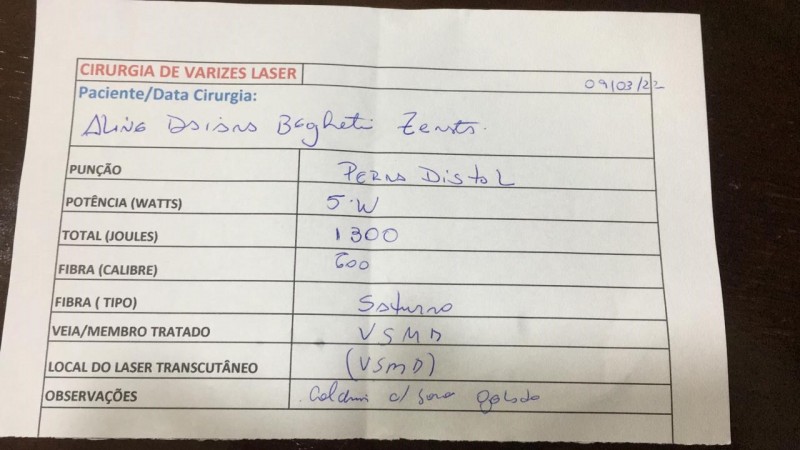 CIRURGIA DE VARIZES LASER
09/03/22
Paciente/Data Cirurgia:
Aline Daiana
PUNÇÃO PERNA DISTAL
POTÊNCIA (WATTS) 5.W
TOTAL (JOULES) 1300
FIBRA (CALIBRE) 600
FIBRA ( TIPO) Saturno
VEIA/MEMBRO TRATADO VSMD
LOCAL DO LASER TRANSCUTÂNEO (VSMD)
OBSERVAÇÕES c/ soro gelado